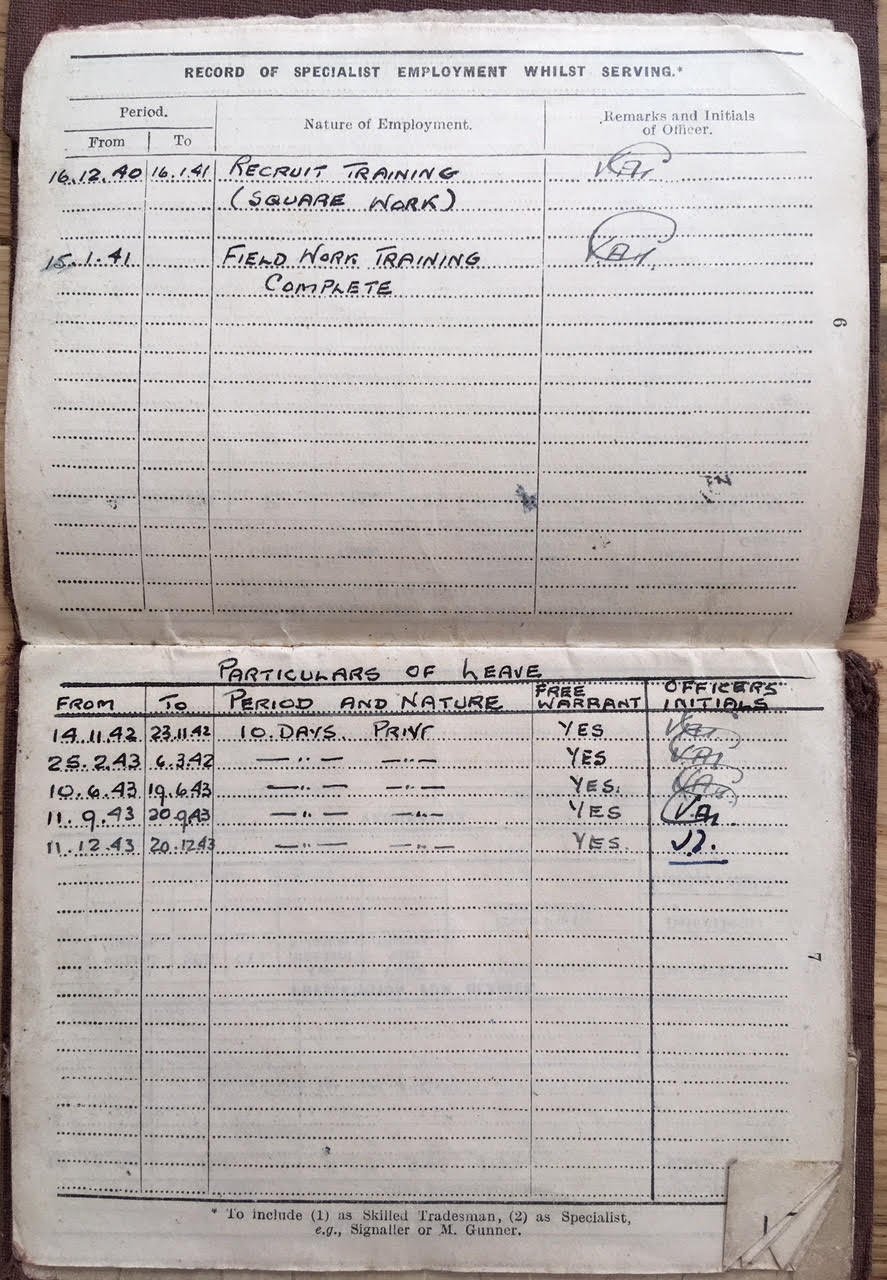 RECORD OF SPECIALIST EMPLOYMENT WHILST SERVING.*
Period.
From To
Nature of Employment.
Remarks and Initials
of Officer.
16.12.40 16.1.41 RECRUIT TRAINING
(SQUARE WORK)
15.1.41 FIELD WORK TRAINING
COMPLETE
6
PARTICULARS OF LEAVE
FROM TO PERIOD AND NATURE FREE WARRANT OFFICERS' INITIALS
14.11.42 23.11.42 10 DAYS. PRIV' YES
25.2.43 6.3.42 —"— —"— YES
10.6.43 19.6.43 —"— —"— YES.
11.9.43 20.9.43 —"— —"— YES
11.12.43 20.12.43 —"— —"— YES.
7
* To include (1) as Skilled Tradesman, (2) as Specialist,
e.g., Signaller or M. Gunner.